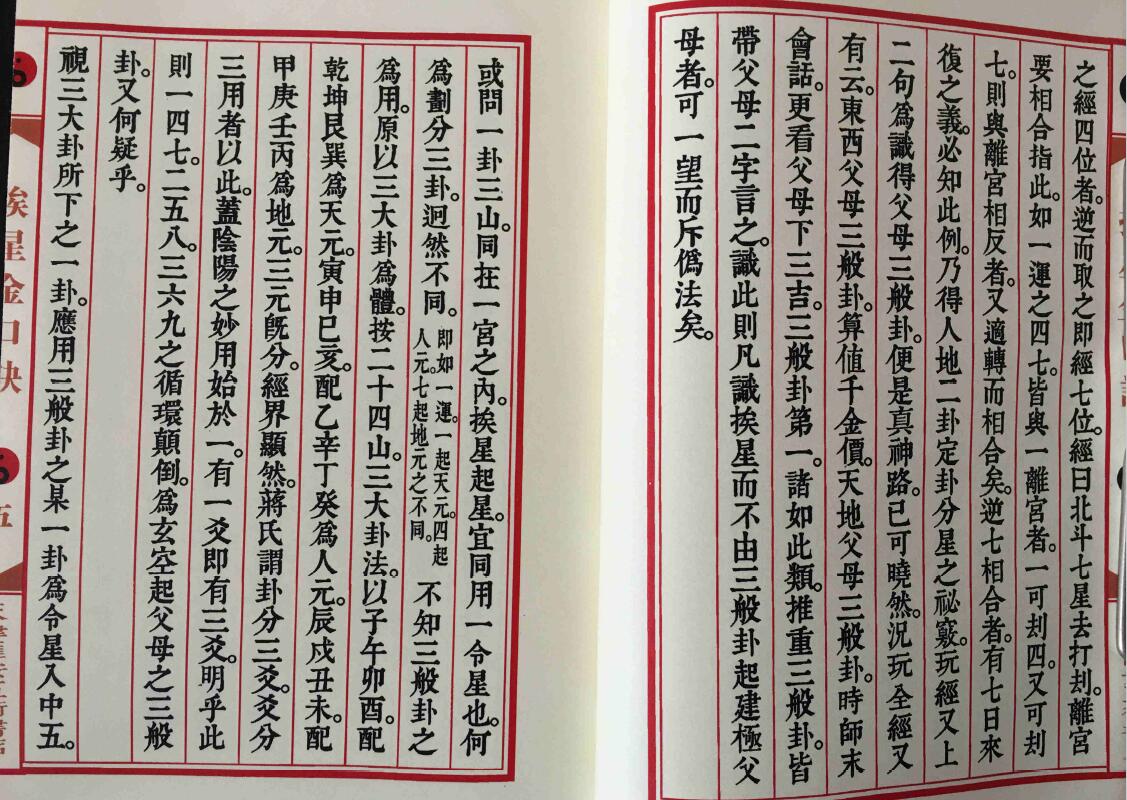 之經四位者。逆而取之即經七位。經曰北斗七星去打刦。離宮
要相合指此。如一運之四七。皆與一離宮者。一可刦四。又可刦
七。則與離宮相反者。又適轉而相合矣。逆七相合者。有七日來
復之義。必知此例。乃得人地二卦定卦分星之祕竅。玩經又上
二句爲識得父母三般卦。便是真神路。已可曉然。況玩全經又
有云。東西父母三般卦。算值千金價。天地父母三般卦。時師末
會話。更看父母下三吉。三般卦第一。諸如此類。推重三般卦。皆
帶父母二字言之。識此則凡識挨星而不由三般卦起建極父
母者。可一望而斥僞法矣。
或問一卦三山。同在一宮之內。挨星起星。宜同用一令星也。何
爲劃分三卦。迥然不同。即如一運。一起天元。四起
人元。七起地元之不同。不知三般卦之
爲用。原以三大卦爲體。按二十四山。三大卦法。以子午卯酉。配
乾坤艮巽爲天元。寅申巳亥。配乙辛丁癸爲人元。辰戍丑未。配
甲庚壬丙爲地元。三元旣分。經界顯然。蔣氏謂卦分三爻。爻分
三用者以此。蓋陰陽之妙用始於一。有一爻即有三爻。明乎此
則一四七。二五八。三六九之循環顛倒。爲玄空起父母之三般
卦。又何疑乎。
視三大卦所下之一卦。應用三般卦之某一卦爲令星入中五。
挨星金口訣
伍